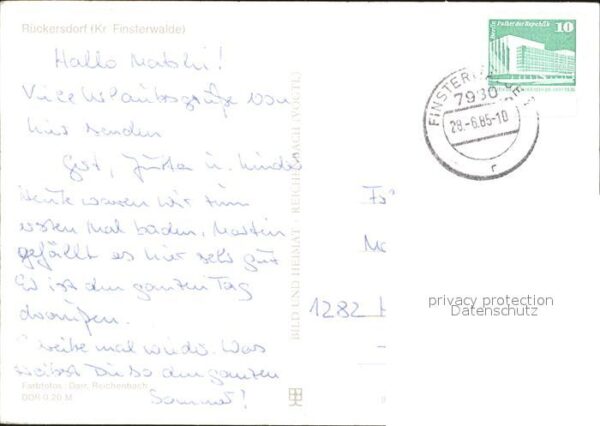 Rückersdorf (Kr. Finsterwalde)
Hallo Matski!
Viele Urlaubsgrüße von
hier senden
Gert, Jutta u. Kinder
Heute waren wir zum
ersten Mal baden. Martin
gefällt es hier sehr gut
Er ist den ganzen Tag
draußen.
mal wieder. Was
Du so den ganzen
Sommer!
Farbfotos: Darr, Reichenbach
DDR 0,20 M
BILD UND HEIMAT · REICHENBACH (VOGTL)
10
Palast der Republik
FINSTERWALDE
7980
28.-6.85-10
r
1282
privacy protection
Datenschutz